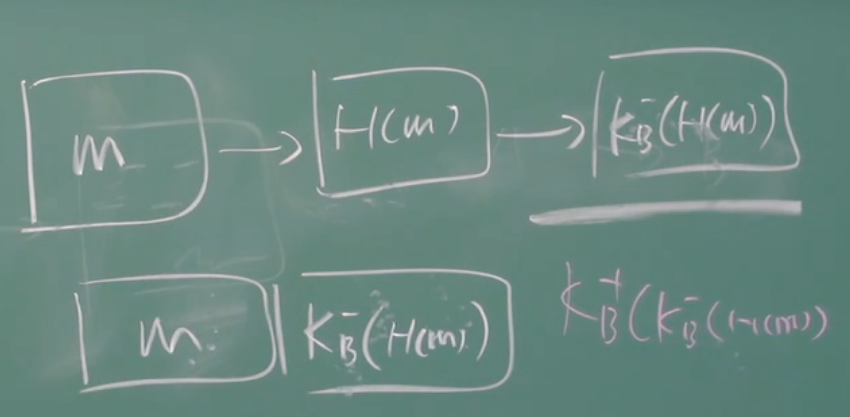 m → H(m) → K_B^-(H(m))
m K_B^-(H(m)) K_B^+(K_B^-(H(m))